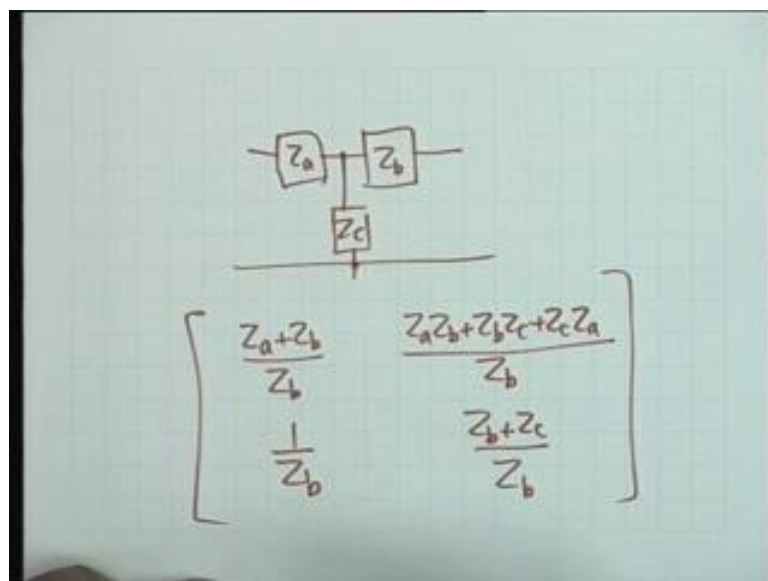 Za Zb
Zc
Za+Zb ZaZb+Zbzc+ZcZa
Zb Zb
1 Zb+Zc
Zb Zb